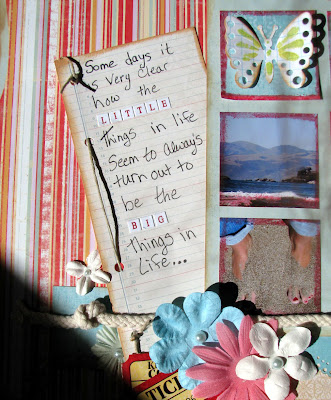 Some days it
very clear
how the
LITTLE
things in life
Seem to always
turn out to
be the
BIG
things in
Life...
TIC